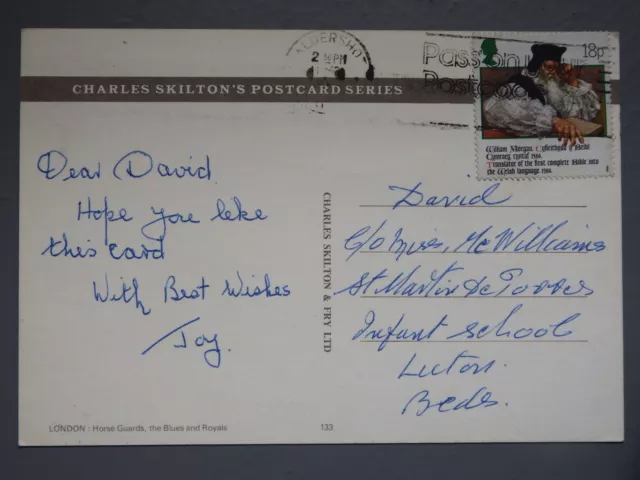 ALDERSHOT
2 PM
Pass on
Postcode
18p
William Morgan. Cyfieithydd y Beibl
Cymraeg cyntaf 1588.
Translator of the first complete Bible into
the Welsh language. 1588.
CHARLES SKILTON'S POSTCARD SERIES
Dear David
Hope you like
this card
With Best Wishes
Joy.
CHARLES SKILTON & FRY LTD
David
c/o Mrs, McWilliams
St Martin de Porres
Infant School
Luton.
Beds.
LONDON : Horse Guards, the Blues and Royals
133